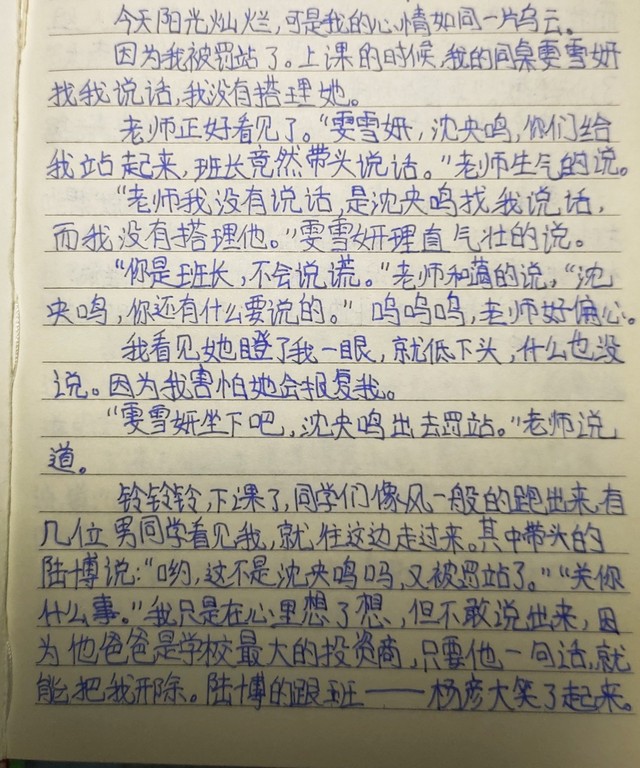 今天阳光灿烂,可是我的心情如同一片乌云。
因为我被罚站了。上课的时候,我的同桌雯雪妍
找我说话,我没有搭理她。
老师正好看见了。“雯雪妍,沈央鸣,你们给
我站起来,班长竟然带头说话。”老师生气的说。
“老师我没有说话,是沈央鸣找我说话,
而我没有搭理他。”雯雪妍理直气壮的说。
“你是班长,不会说谎。”老师和蔼的说,“沈
央鸣,你还有什么要说的。” 呜呜呜,老师好偏心。
我看见她瞪了我一眼,就低下头,什么也没
说。因为我害怕她会报复我。
“雯雪妍坐下吧,沈央鸣出去罚站。”老师说
道。
铃铃铃,下课了,同学们像风一般的跑出来.有
几位男同学看见我,就往这边走过来。其中带头的
陆博说:“哟,这不是沈央鸣吗,又被罚站了。”“关你
什么事。”我只是在心里想了想,但不敢说出来,因
为他爸爸是学校最大的投资商,只要他一句话,就
能把我开除。陆博的跟班——杨彦大笑了起来。